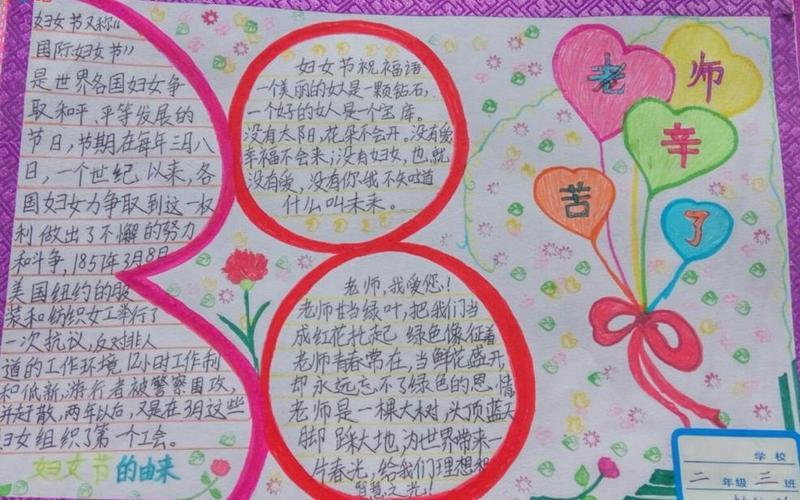 妇女节又称“
国际妇女节”
是世界各国妇女争
取和平、平等发展的
节日,节期在每年三月八
日,一个世纪以来,各
国妇女为争取到这一权
利做出了不懈的努力
和斗争,1857年3月8日
美国纽约的服
装和纺织女工举行了
一次抗议,反对非人
道的工作环境12小时工作制
和低新,游行者被警察围攻,
并赶散,两年以后,又是在3月这些
妇女组织了第一个工会。
妇女节的由来
妇女节祝福语
一个美丽的女人是一颗钻石,
一个好的女人是一个宝库。
没有太阳,花朵不会开,没有爱
幸福不会来;没有妇女,也就
没有爱,没有你我不知道
什么叫未来。
老师,我爱您!
老师甘当绿叶,把我们当
成红花托起,绿色像征着
老师青春常在,当鲜花盛开,
却永远忘不了绿色的恩情
老师是一棵大树,头顶蓝天
脚踩大地,为世界带来一
片春光,给我们理想和
智慧之光!
老师
辛
苦
了
学校
二年级三班